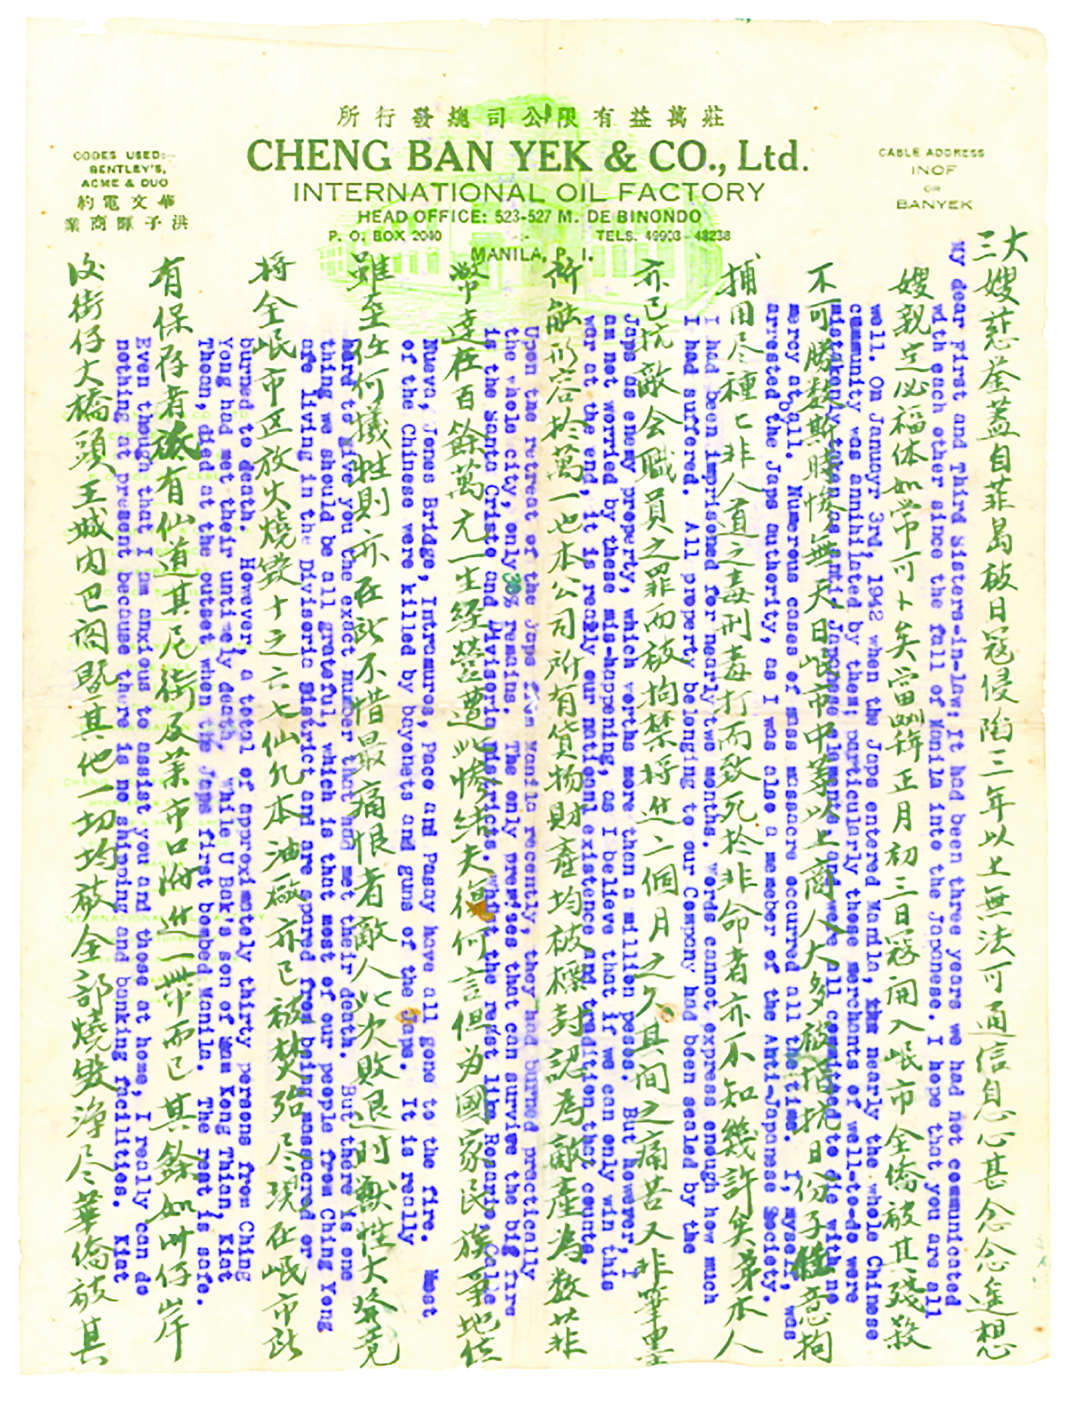 所行發總司公限有益萬莊
CHENG BAN YEK & CO., Ltd.
INTERNATIONAL OIL FACTORY
HEAD OFFICE: 523-527 M. DE BINONDO
P. O. BOX 2040 -:- TELS. 49903 - 48238
MANILA, P. I.
CODES USED:-
BENTLEY'S,
ACME & DUO
約電文華
業商暉子洪
CABLE ADDRESS
INOF
OR
BANYEK
大三嫂慈鋻蓋自菲島被日寇侵陷三年以上無法可通信息心甚念念遙想
嫂親定必福体如常可卜矣當正月初三日寇開入岷市全僑被其殘殺
不可勝数斯時慘無天日岷市中等以上商人大多被指抗日份子任意拘
捕用尽種々非人道之毒刑毒打而致死於非命者亦不知幾許矣弟本人
亦已抗敵会職員之罪而被拘禁将近二個月之久其間之痛苦又非筆墨
所能形容於萬一也本公司所有貨物財產均被標封認為敵產為数菲
幣達在百餘萬元一生經營遭此慘結夫復何言但为國家民族爭地位
雖至任何犧牲則亦在所不惜最痛恨者敵人此次敗退時獸性大發竟
将全岷市区放火燒毀十之六七仙凡本油廠亦已被焚殆尽現在岷市所
有保存者祗有仙道其尼街及菜市口附近一帶而已其餘如洲仔岸
后街仔大橋頭王城内巴閣暨其他一切均被全部燒毀净尽華僑被其
My dear First and Third Sisters-in-Law: It had been three years we had not communicated
with each other since the fall of Manila into the Japanese. I hope that you are all
well. On Januayr 3rd, 1942 when the Japs entered Manila, nearly the whole Chinese
cummunity was annihilated by them; particularly those merchants of well-to-do were
mistakenly taken as anti-Japanese elements and were all committed to die with no
mercy at all. Numerous cases of mass massacre occurred all the time. I, myself, was
arrested by the Japs authority, as I was also a memeber of the Anti-Japanese Society.
I had been imprisoned for nearly two months. Words cannot express enough how much
I had suffered. All property belonging to our Company had been sealed by the
Japs as enemy property, which worths more than a million pesos. But however, I
am not worried by these mis-happening, as I believe that if we can only win this
war at the end, it is really our national existence and tradition that counts.
Upon the retreat of the Japs from Manila recently, they had burned practically
the whole city, only 30% remains. The only premises that can survive the big fire
is the Santa Cristo and Divisoria Districts. While the rest like Rosario, Calle
Nueva, Jones Bridge, Intramuros, Paco and Pasay have all gone to the fire. Most
of the Chinese were killed by bayonets and guns of the Japs. It is really
hard to give you the exact number that has met their death. But there is one
thing we should be all grateful, which is that most of our people from Ching Yong
are living in the Divisoria District and are spared from being massacred or
burned to death. However, a total of approximately thirty persons from Ching
Yong had met their untimely death, while U Bok's son of Kong Thian, Kiat
Thoon, died at the outset when the Japs first bombed Manila. The rest is safe.
Even though that I am anxious to assist you and those at home, I really can do
nothing at present because there is no shipping and banking facilities. Kiat